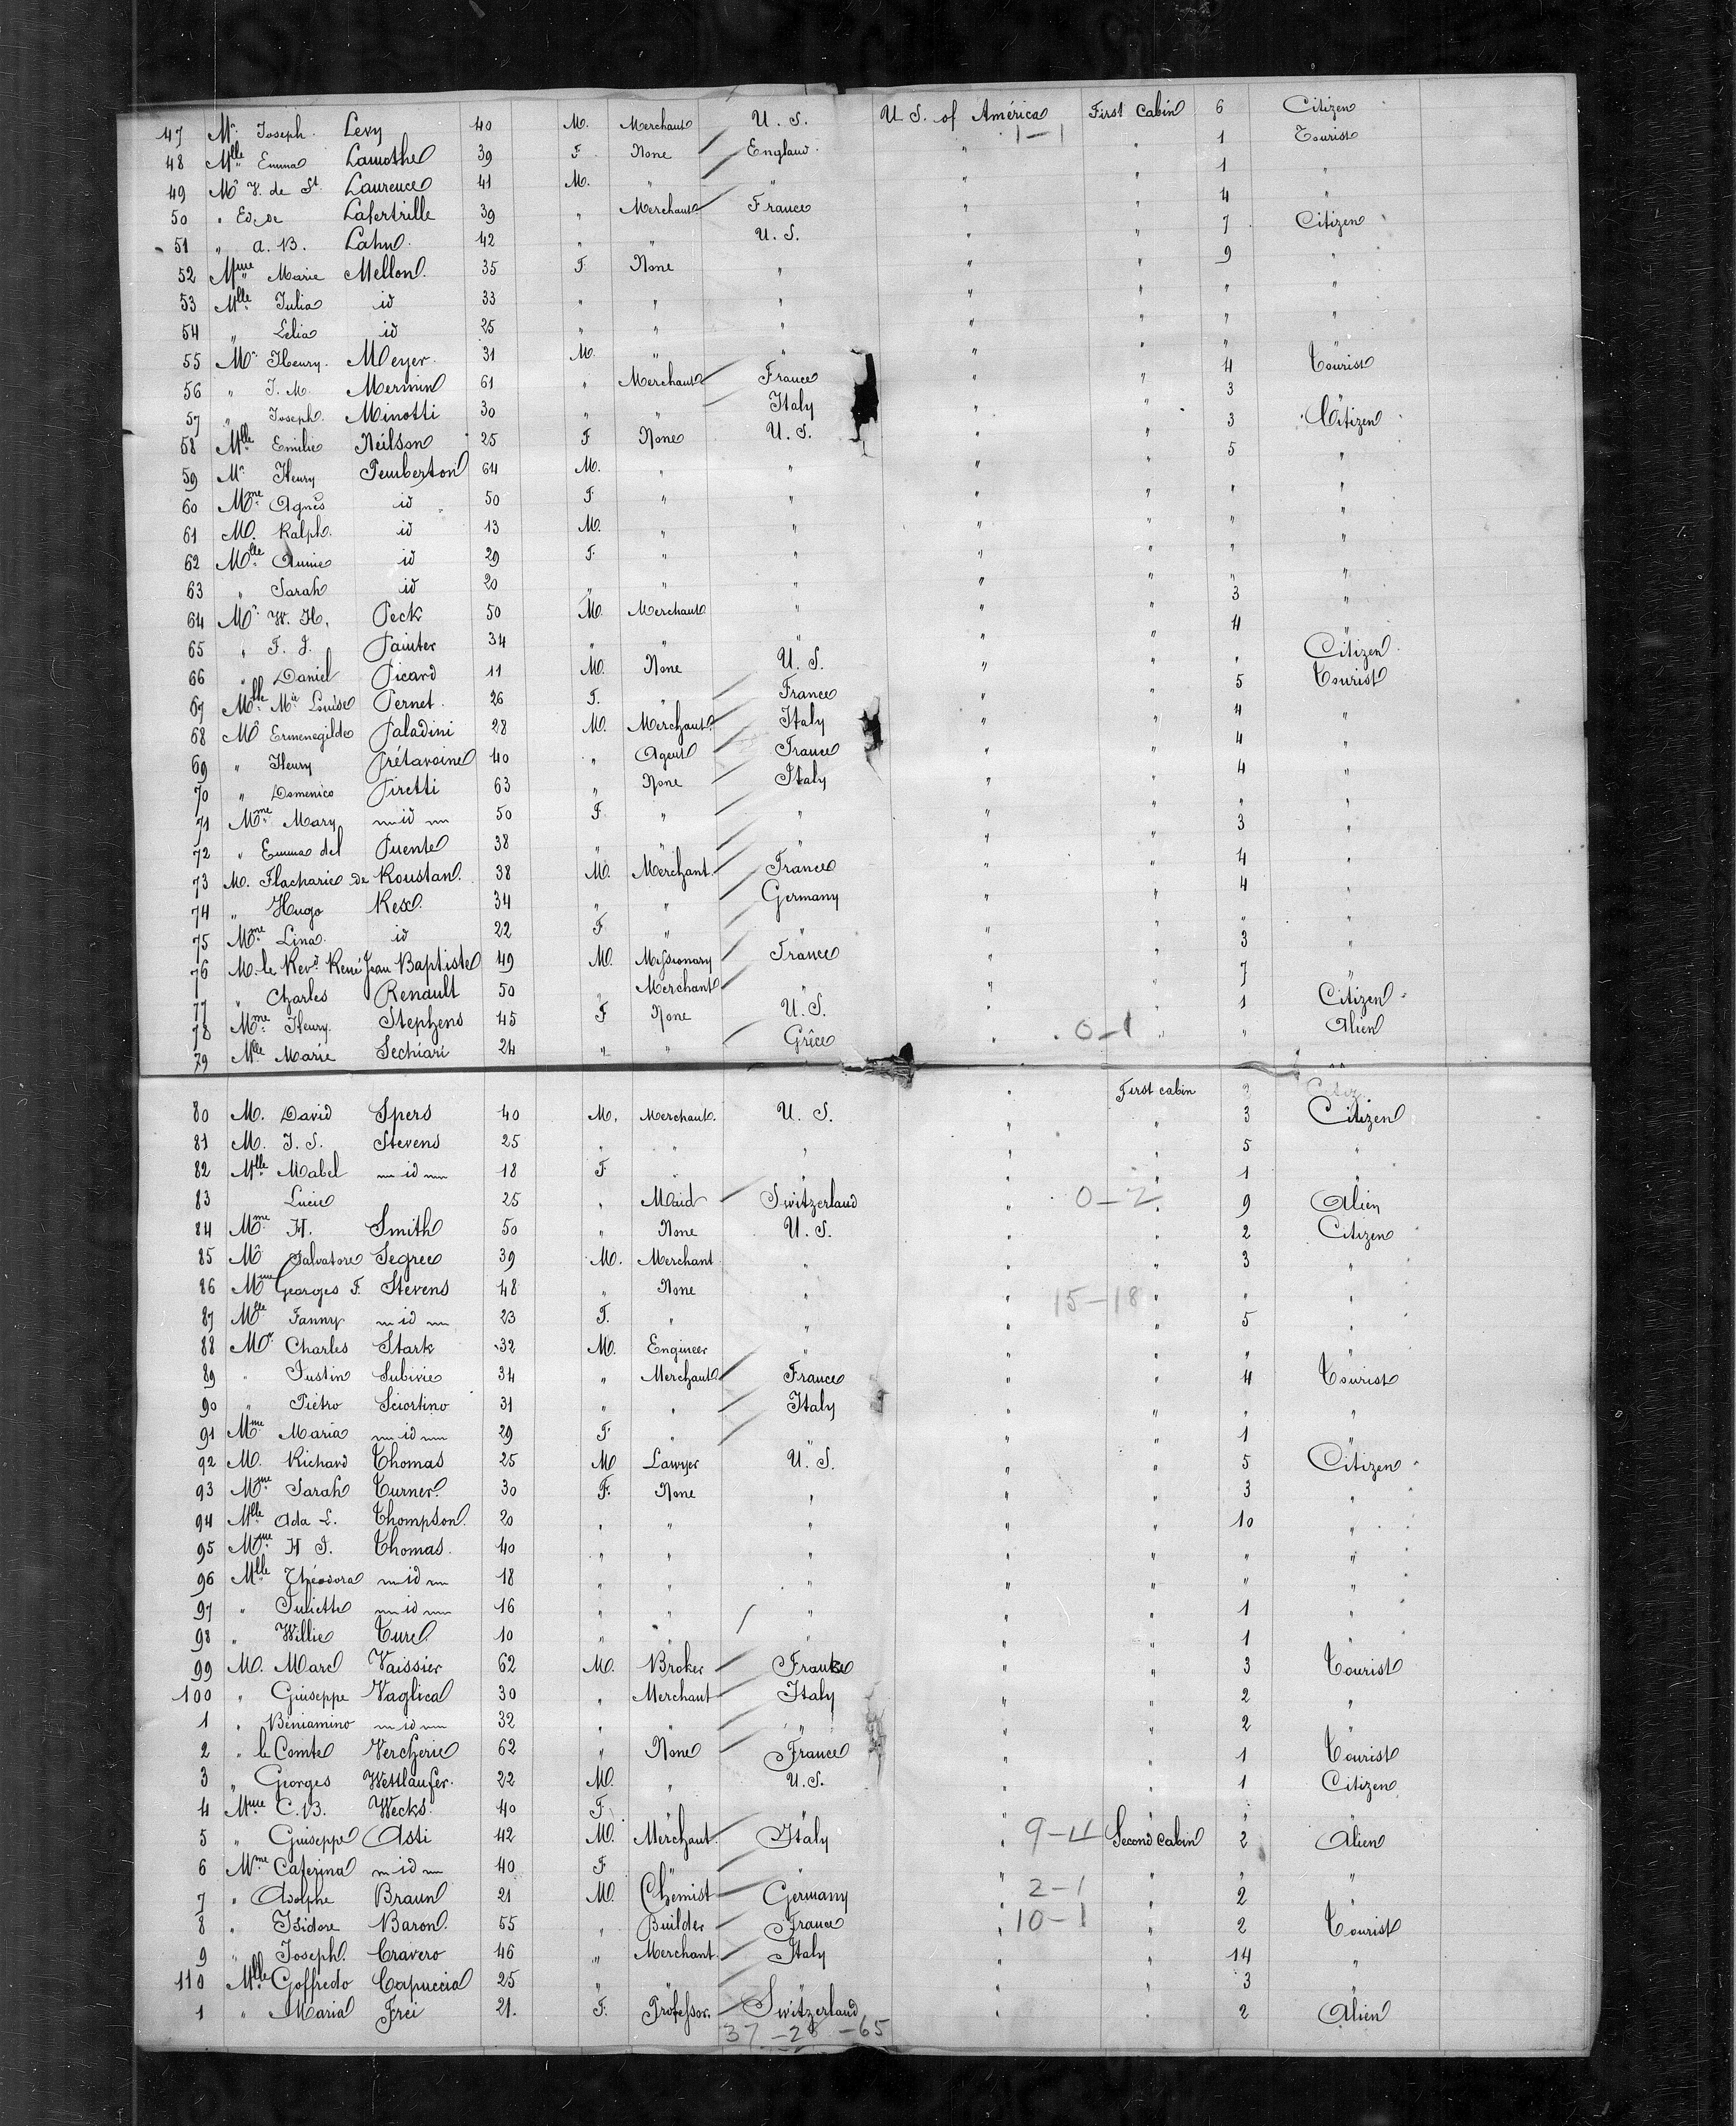 47 Mr. Joseph. Levy 40 M. Merchant U. S. U. S. of América First Cabin 6 Citizen
1-1
48 Mlle Emma Lamothe 39 F. None England " " 1 Tourist
49 Mr V. de St Laurence 41 M. " " " " 1 "
50 " Ed. de Lafertrille 39 " Merchant France " " 4 "
51 " A. B. Lahn. 42 " " U. S. " " 7 Citizen
52 Mme Marie Mellon. 35 F. None " " " 9 "
53 Mlle Julia id 33 " " " " " " "
54 " Lelia id 25 " " " " " " "
55 Mr. Henry. Meyer. 31 M. " " " " "
56 " J. M. Mermin 61 " Merchant France " " 4 Tourist
57 " Joseph. Minotti 30 " " Italy " " 3 "
58 Mlle Emilie Neilson 25 F None U. S. " " 3 Citizen
59 Mr Henry Pemberton 64 M. " " " " 5 "
60 Mme Agnès id 50 F. " " " " " "
61 M. Ralph. id 13 M. " " " " " "
62 Mlle Annie id 29 F. " " " " " "
63 " Sarah id 20 " " " " " " "
64 Mr. W. H. Peck 50 M. Merchant " " " 3 "
65 " F. J. Painter 34 " " " " " 4 "
66 " Daniel Picard 11 M. None U. S. " " " Citizen
67 Mlle Mie Louise Pernet. 26 F. " France " " 5 Tourist
68 Mr Ermenegildo Paladini 28 M. Merchant Italy " " 4 "
69 " Henry Prétavoine 40 " Agent France " " 4 "
70 " Domenico Piretti 63 " None Italy " " 4 "
71 Mme Mary id 50 F. " " " " " "
72 " Emma del Puente 38 " " " " " 3 "
73 M. Flacharie de Roustan. 38 M. Merchant. France " " 4 "
74 " Hugo Rex. 34 " " Germany " " 4 "
75 Mme Lina. id 22 F " " " " " "
76 M. le Revd René Jean Baptiste 49 M. Missionary France " " 3 "
77 " Charles Renault 50 " Merchant " " " 7 "
78 Mme Henry. Stephens 45 F None U. S. " " 1 Citizen
79 Mlle Marie Sechiari 24 " " Grêce " 0-1 " " Alien
First cabin
80 M. David Spers 40 M. Merchant. U. S. " " 3 Citizen
81 M. J. S. Stevens 25 " " " " " 5 "
82 Mlle Mabel id 18 F " " " " 1 "
83 Lucie 25 " Maid Switzerland " 0-2 " 9 Alien
84 Mme H. Smith 50 " None U. S. " " 2 Citizen
85 Mr Salvatore Segree 39 M. Merchant " " " 3 "
86 Mme Georges F. Stevens 48 " None " " " " "
15-18
87 Mlle Fanny id 23 F. " " " " 5 "
88 Mr Charles Stark 32 M. Engineer " " " " "
89 " Justin Subirie 34 " Merchant France " " 4 Tourist
90 " Piétro Sciortino 31 " " Italy " " " "
91 Mme Maria id 29 F. " " " " 1 "
92 M. Richard Thomas 25 M Lawyer U. S. " " 5 Citizen
93 Mme Sarah Turner. 30 F. None " " " 3 "
94 Mlle Ada L. Thompson. 20 " " " " " 10 "
95 Mme H J. Thomas. 40 " " " " " " "
96 Mlle Théodora id 18 " " " " " " "
97 " Juliette id 16 " " " " " 1 "
98 " Willie Turel 10 " " " " " 1 "
99 M. Marc Vaissier 62 M. Broker France " " 3 Tourist
100 " Giuseppe Vaglica 30 " Merchant Italy " " 2 "
1 " Beniamino id 32 " " " " " 2 "
2 " le Comte Vercherie 62 " None France " " 1 Tourist
3 " Georges Wettlaufer. 22 M. " U. S. " " 1 Citizen
4 Mme C. B. Weeks. 40 F. " " "
5 " Giuseppe Asti 42 M. Merchant. Italy " 9-4 Second Cabin 2 Alien
6 Mme Caterina id 40 F " " " " " "
7 " Adolphe Braun 21 M. Chemist Germany " 2-1 " 2 "
8 " Isidore Baron. 55 " Builder France " 10-1 " 2 Tourist
9 " Joseph. Cravero 46 " Merchant. Italy " " 14 "
110 Mlle Goffredo Capuccia 25 " " " " " 3 "
1 " Maria Frei 21. F. Professor. Switzerland " " 2 Alien
37 -65